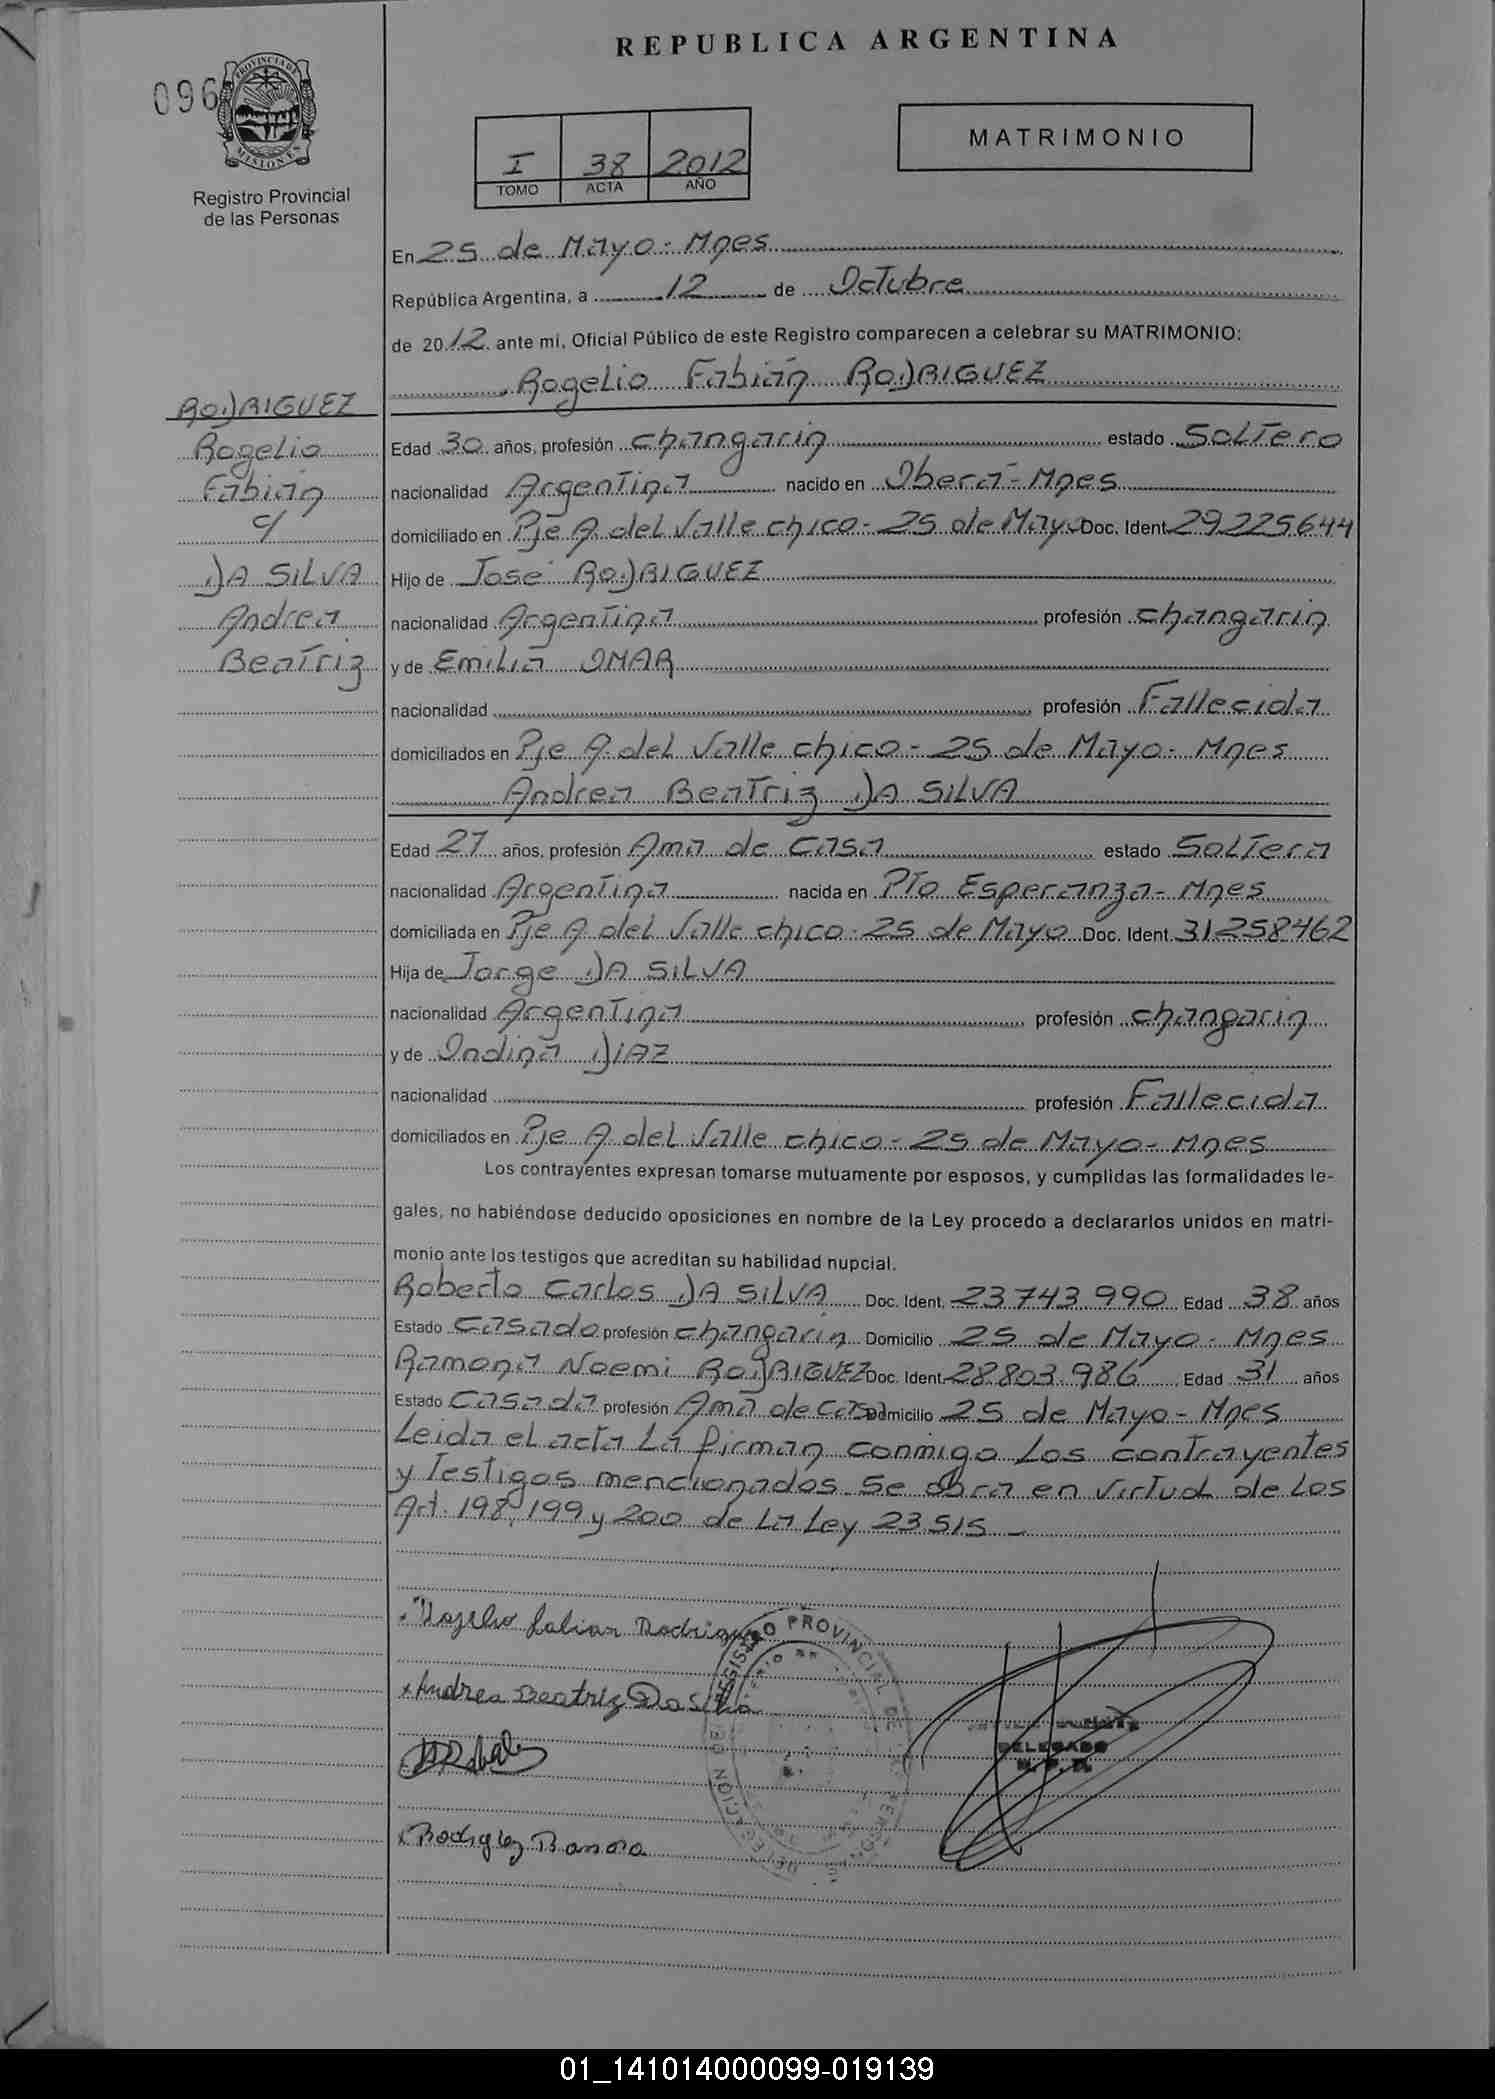 REPUBLICA ARGENTINA
096
PROVINCIA DE
MISIONES
Registro Provincial
de las Personas
MATRIMONIO
I 38 2012
TOMO ACTA AÑO
En 25 de Mayo - Mnes
República Argentina, a 12 de Octubre
de 2012 ante mi, Oficial Público de este Registro comparecen a celebrar su MATRIMONIO:
Rogelio Fabián RODRIGUEZ
RODRIGUEZ
Rogelio
Fabián
c/
DA SILVA
Andrea
Beatriz
Edad 30 años, profesión changarin estado Soltero
nacionalidad Argentina nacido en Oberá - Mnes
domiciliado en Pje A. del Valle chico - 25 de Mayo Doc. Ident. 29.225.644
Hijo de José RODRIGUEZ
nacionalidad Argentina profesión changarin
y de Emilia OMAR
nacionalidad profesión Fallecida
domiciliados en Pje A. del Valle chico - 25 de Mayo - Mnes
Andrea Beatriz DA SILVA
Edad 27 años, profesión Ama de Casa estado Soltera
nacionalidad Argentina nacida en Pto Esperanza - Mnes
domiciliada en Pje A del Valle chico - 25 de Mayo Doc. Ident. 31.258.462
Hija de Jorge DA SILVA
nacionalidad Argentina profesión changarin
y de Ondina DIAZ
nacionalidad profesión Fallecida
domiciliados en Pje A. del Valle chico - 25 de Mayo - Mnes
Los contrayentes expresan tomarse mutuamente por esposos, y cumplidas las formalidades le-
gales, no habiéndose deducido oposiciones en nombre de la Ley procedo a declararlos unidos en matri-
monio ante los testigos que acreditan su habilidad nupcial.
Roberto Carlos DA SILVA Doc. Ident. 23.743.990 Edad 38 años
Estado Casado profesión changarin Domicilio 25 de Mayo - Mnes
Ramona Noemi RODRIGUEZ Doc. Ident. 28.803.986 Edad 31 años
Estado Casada profesión Ama de Casa Domicilio 25 de Mayo - Mnes
Leida el acta la firman conmigo los contrayentes
y testigos mencionados. Se obra en virtud de los
Art. 198, 199 y 200 de la Ley 23.515 -
Rogelio Fabian Rodriguez
x Andrea Beatriz Da Silva
REGISTRO PROVINCIAL DE
DELEGACIÓN DE
DELEGADO
R. P. P.
x Rodriguez Ramona
01_141014000099-019139